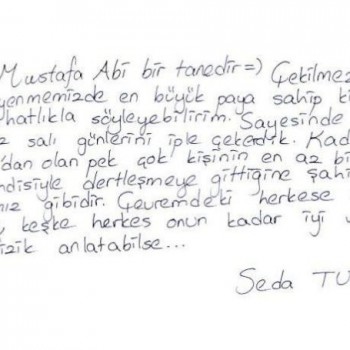 Mustafa Abi bir tanedir =) Çekilmez
yenmemizde en büyük paya sahip ki
hatlıkla söyleyebilirim. Sayesinde
z salı günlerini iple çekerdik. Kad
'dan olan pek çok kişinin en az bi
ndisiyle dertleşmeye gittiğine şahi
mız gibidir. Çevremdeki herkese
, keşke herkes onun kadar iyi v
izik anlatabilse...
Seda TU